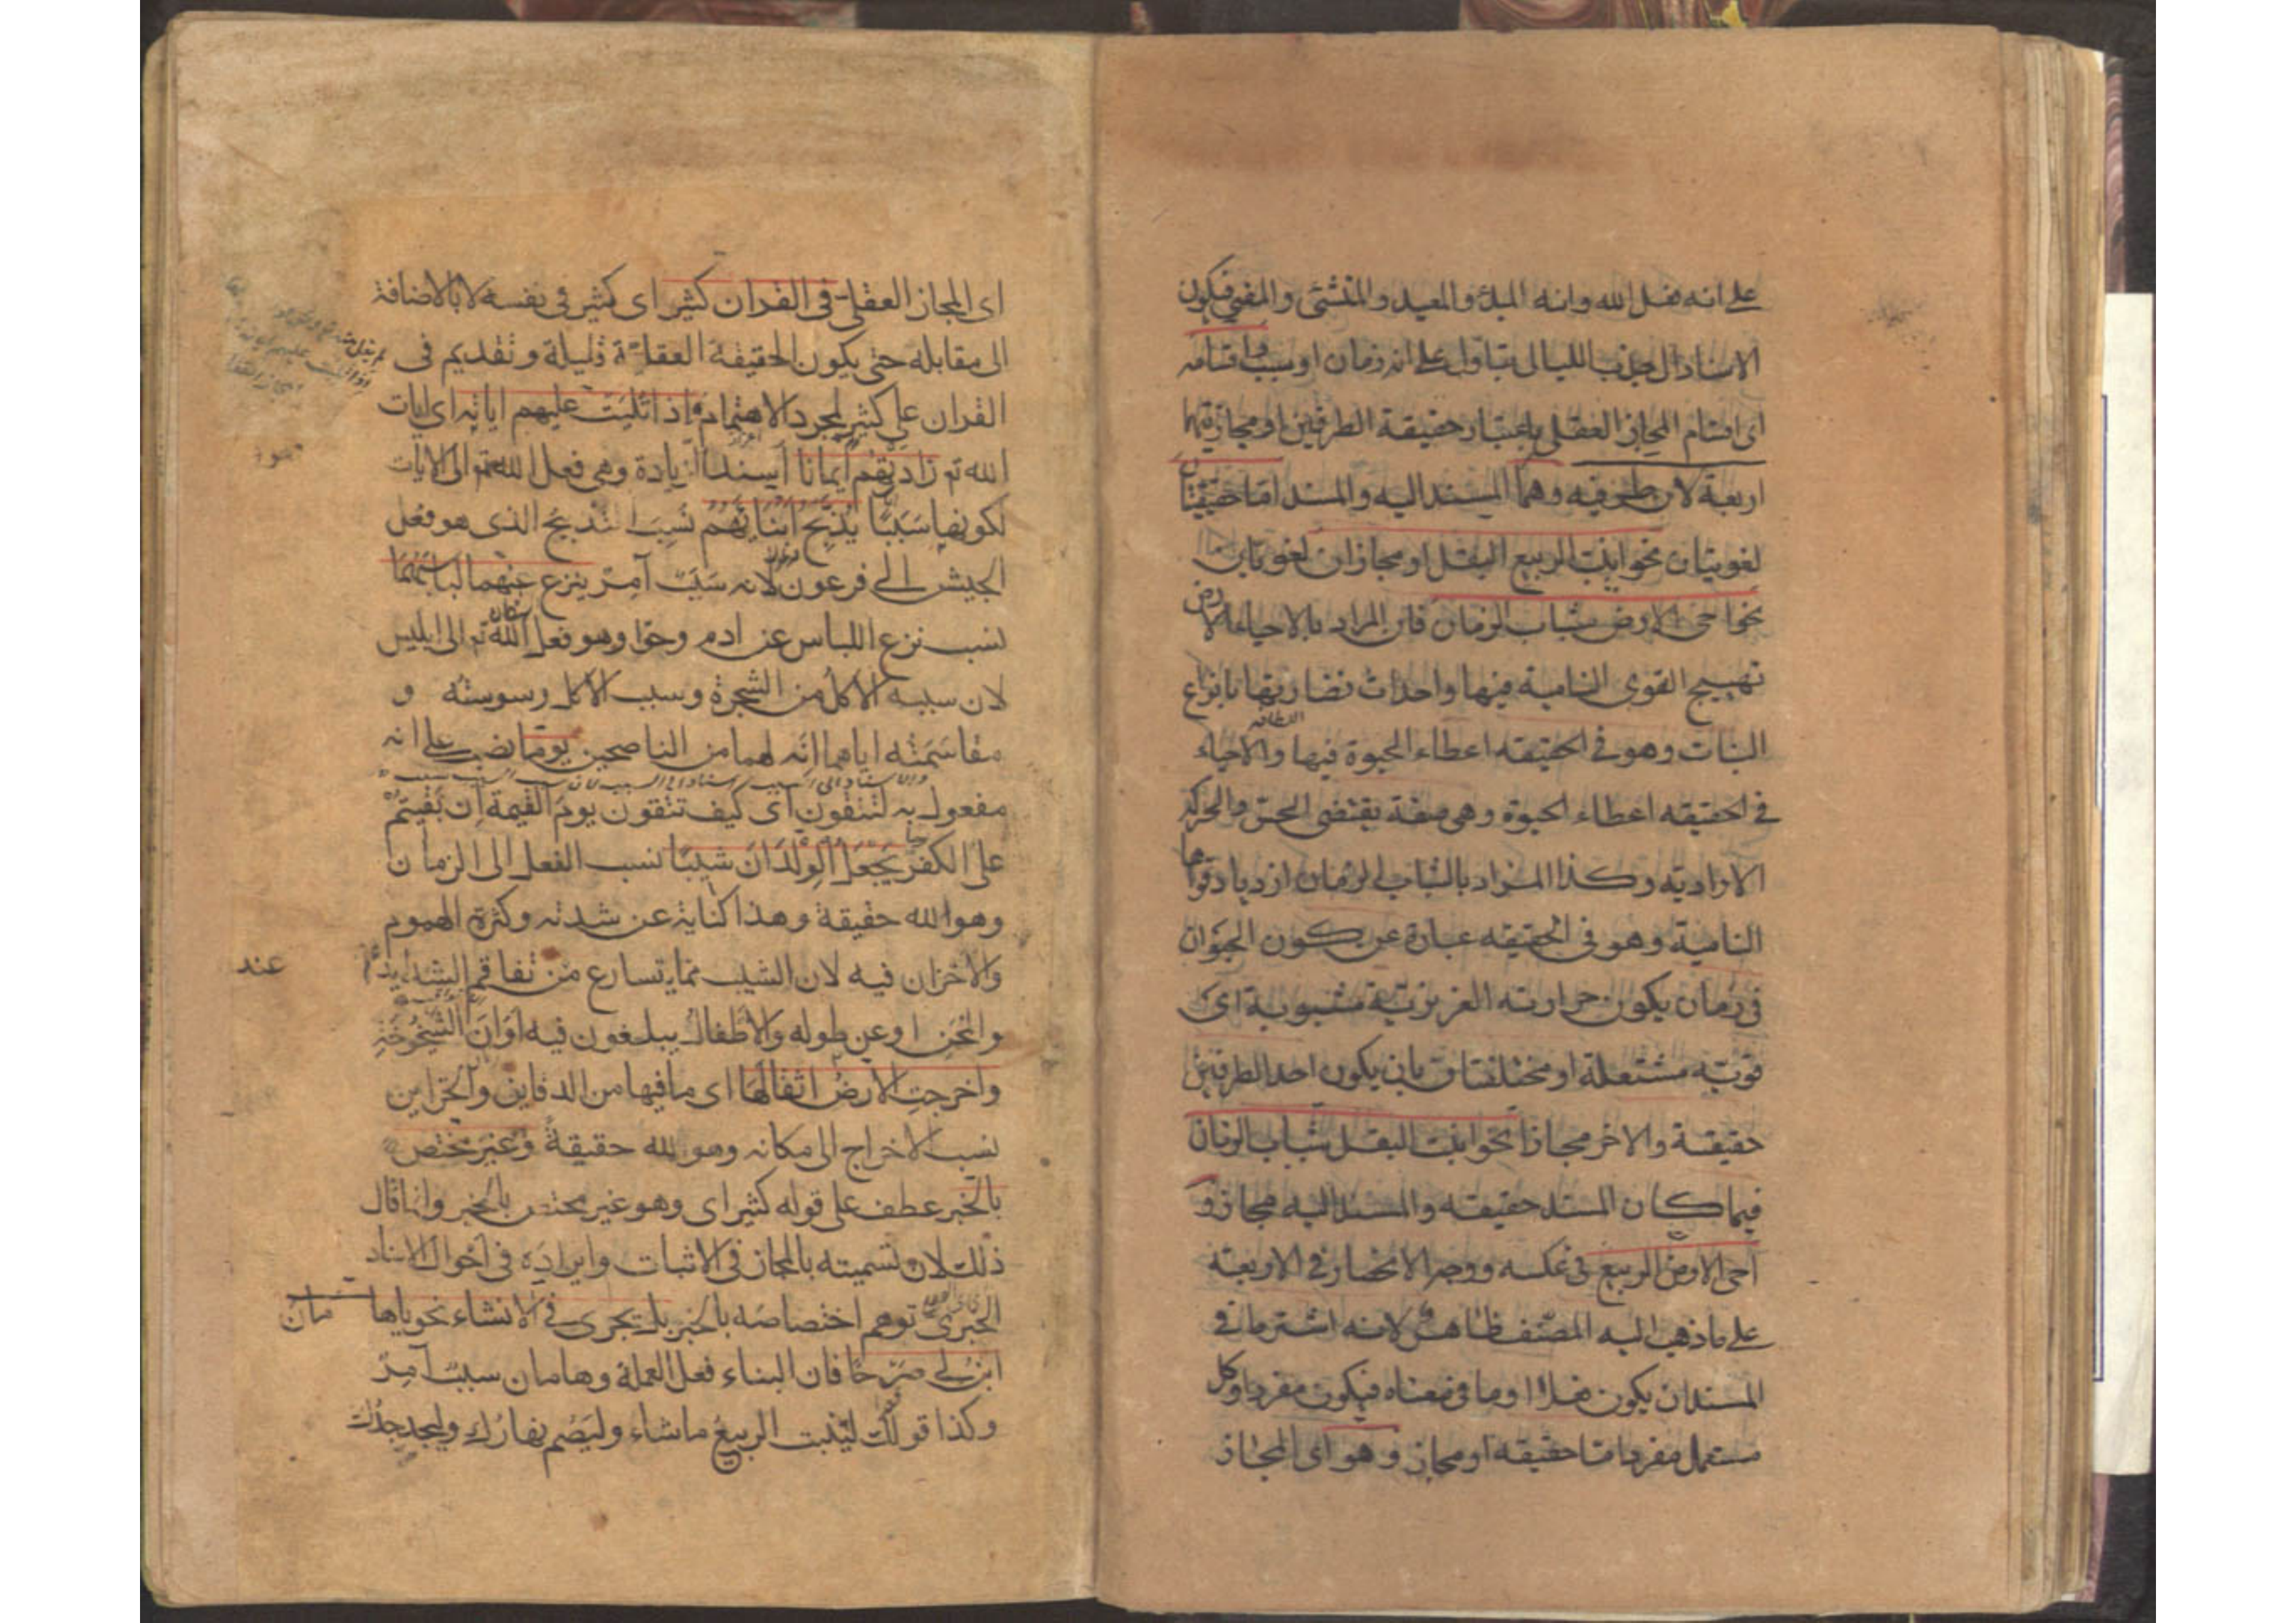 على انه فعل الله وانه المبدئ والمعيد والمنشئ والمفني فيكون
الاسناد الى جذب الليالى بتاول على انه زمان او سبب واقسامه
اى اقسام المجاز العقلى باعتبار حقيقة الطرفين او مجازيتهما
اربعة لان طرفيه وهما المسند اليه والمسند اما حقيقتان
لغويتان نحو انبت الربيع البقل او مجازان لغويان
نحو احيى الارض شباب الزمان فان المراد باحياء الارض
تهييج القوى النامية فيها واحداث نضارتها بانواع
النبات وهو فى الحقيقه اعطاء الحيوة فيها والاحياء
فى الحقيقه اعطاء الحيوة وهى صفة يقتضى الحس والحركة
الاراديه وكذا المراد بالشباب الزمان ازدياد قواها
النامية وهو فى الحقيقه عبارة عن كون الحيوان
فى زمان يكون حرارته الغريزية مشبوبة اى
قويه مشتعلة او مختلفتان بان يكون احد الطرفين
حقيقة والاخر مجازا نحو انبت البقل شباب الزمان
فيما كان المسند حقيقه والمسند اليه مجاز و
احى الارض الربيع فى عكسه ووجه الانحصار فى الاربعه
على ما ذهب اليه المصنف ظاهر لانه اشترط فى
المسند ان يكون فعلا او ما فى معناه فيكون مفردا وكل
مستعمل مفرد اما حقيقه او مجاز وهو اى المجاز
اى المجاز العقلى فى القران كثير اى كثير فى نفسه لا بالاضافة
الى مقابله حتى يكون الحقيقة العقلية قليلة وتقديم فى
القران على كثير لمجرد الاهتمام واذا تليت عليهم اياته اى ايات
الله تم زادتهم ايمانا اسند الزيادة وهى فعل الله تم الى الايات
لكونها سببا يذبح ابناءهم نسب التذبيح الذى هو فعل
الجيش الى فرعون لانه سبب آمر ينزع عنهما لباسهما
نسب نزع اللباس عن ادم وحوا وهو فعل الله تم الى ابليس
لان سببه الاكل من الشجرة وسبب الاكل وسوسته و
مقاسمته اياهما انه لهما من الناصحين يوما نصب على انه
مفعول به لتتقون اى كيف تتقون يوم القيمة ان بقيتم
على الكفر يجعل الولدان شيبا نسب الفعل الى الزمان
وهو الله حقيقة وهذا كناية عن شدته وكثرة الهموم
والاحزان فيه لان الشيب مما يتسارع من تفاقم الشدايد
عند
والمحن او عن طوله والاطفال يبلغون فيه اوان الشيخوخة
واخرجت الارض اثقالها اى ما فيها من الدفاين والخزاين
نسب الاخراج الى مكانه وهو لله حقيقة وغير مختص
بالخبر عطف على قوله كثير اى وهو غير مختص بالخبر وانما قال
ذلك لان تسميته بالمجاز فى الاثبات وايراده فى احوال الاسناد
الخبرى توهم اختصاصه بالخبر بل يجرى فى الانشاء نحو ياهامان
ابن لى صرحا فان البناء فعل العملة وهامان سبب آمر
وكذا قولك لينبت الربيع ماشاء وليصم نهارك وليجد جدك